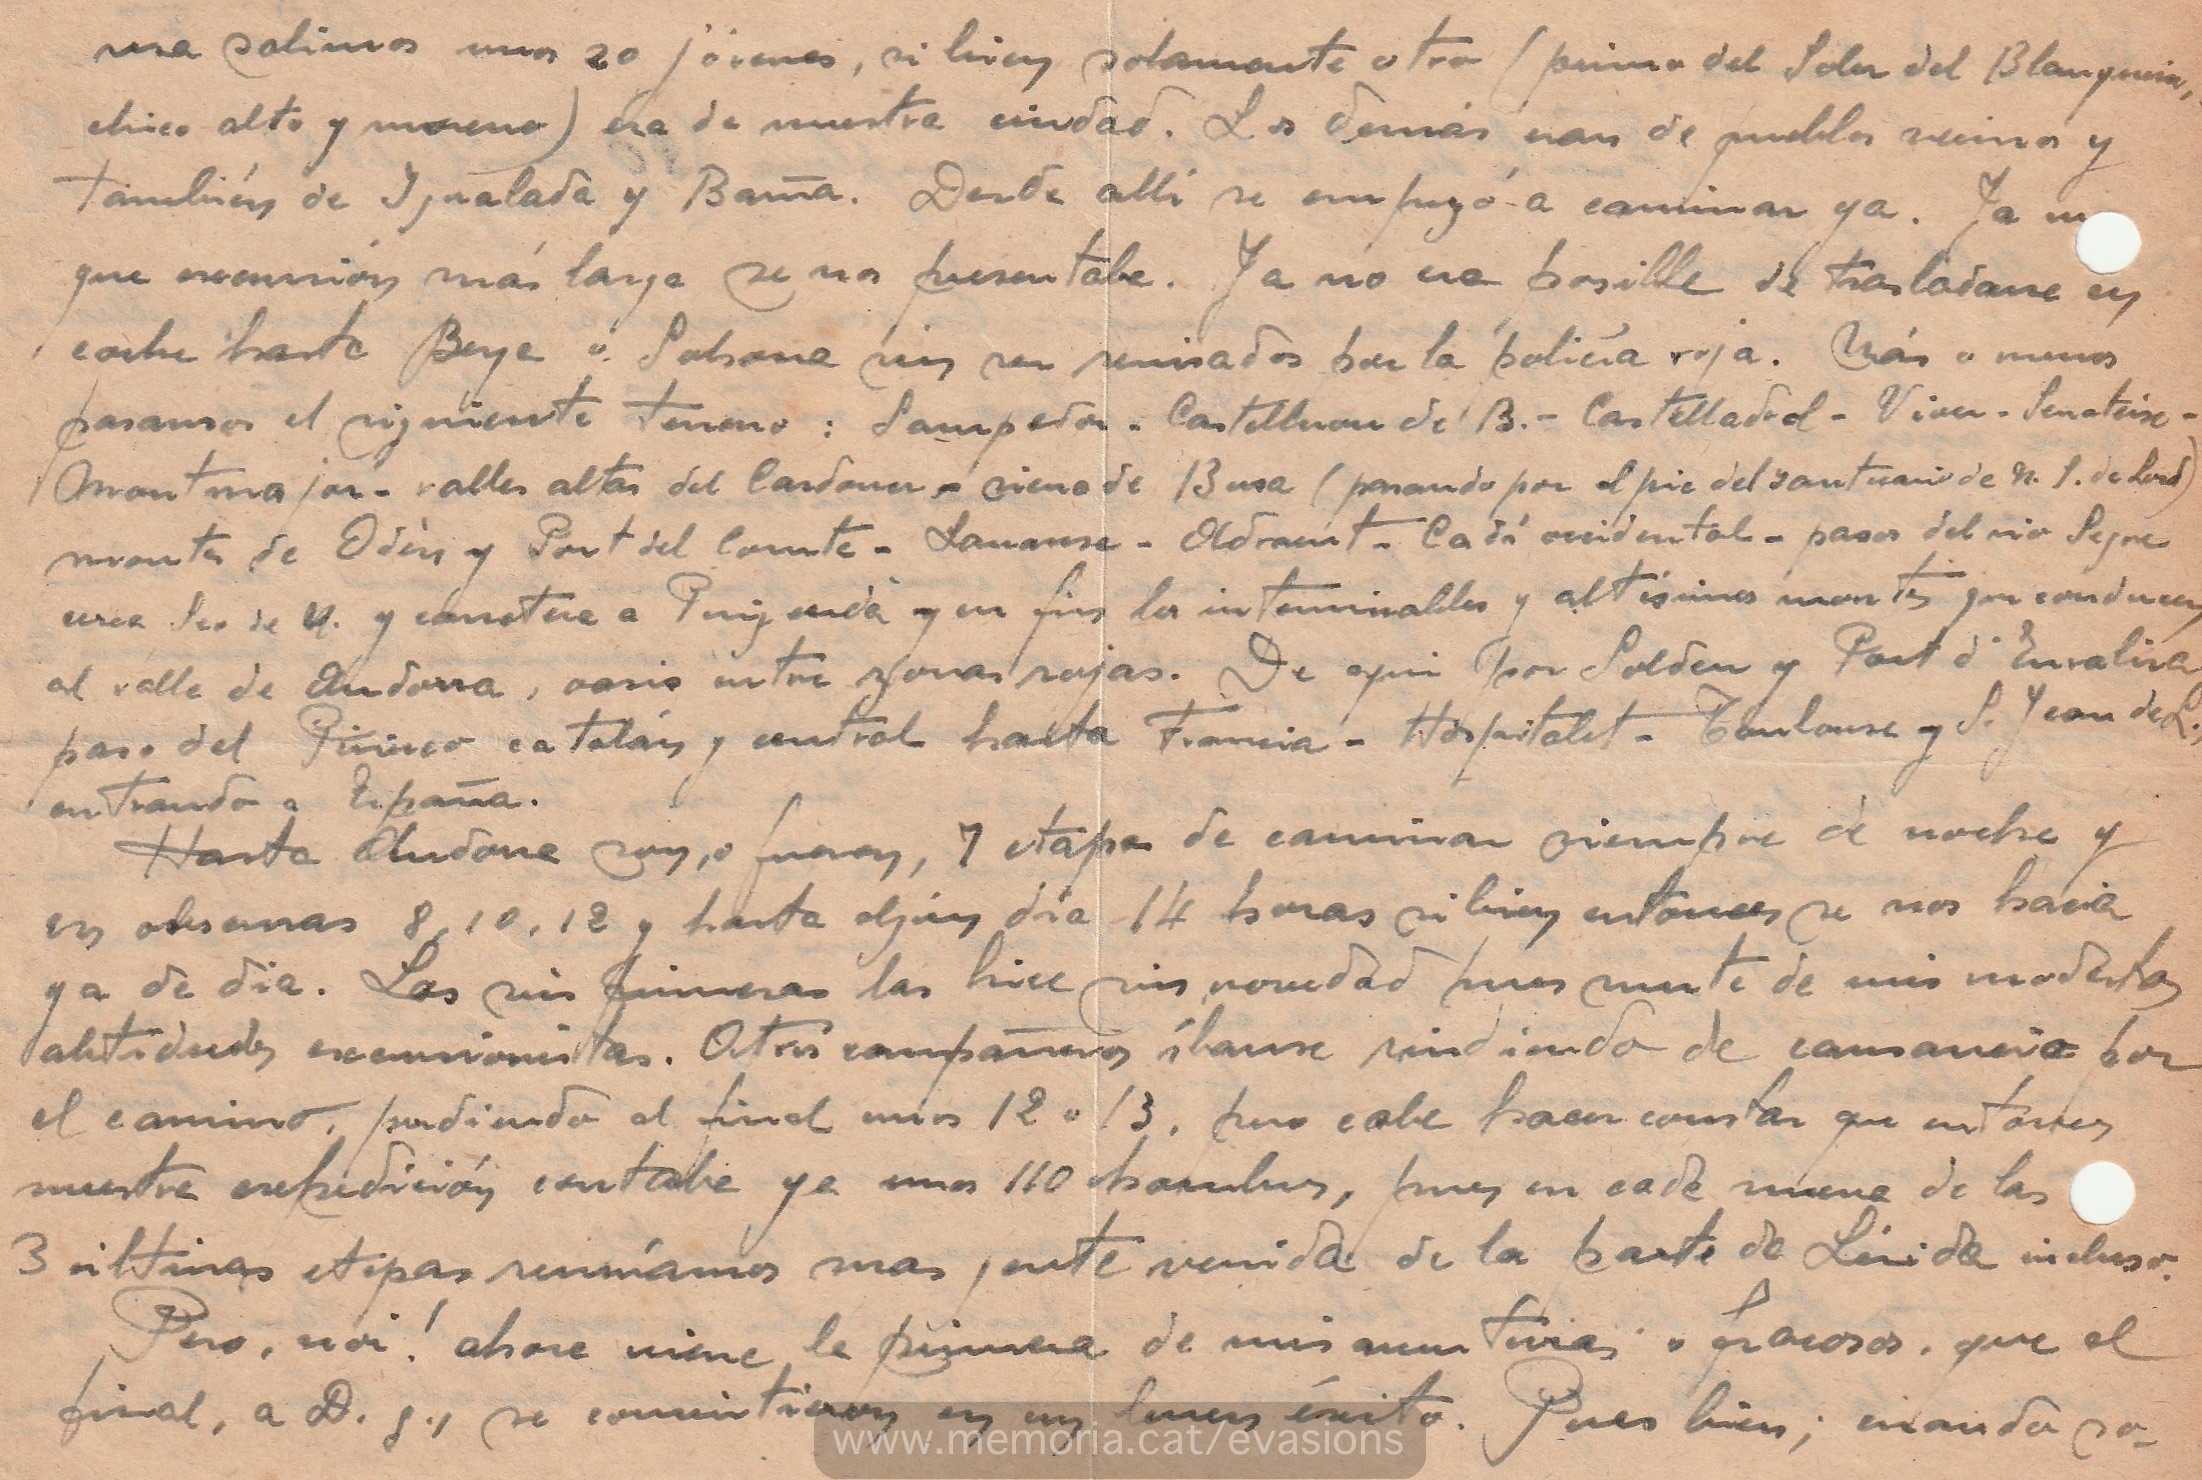 resa salimos unos 20 jóvenes, si bien solamente otro (primo del Soler del Blanquerin,
chico alto y moreno) era de nuestra ciudad. Los demás eran de pueblos vecinos y
también de Igualada y Barña. Desde allí se empezó a caminar ya. Ya
que excursión más larga se nos presentaba. Ya no era posible de trasladarse en
coche hasta Berga o Solsona sin ser revisados por la policía roja. Más o menos
pasamos el siguiente terreno: Sampedor - Castellnou de B. - Castelladral - Viver - Serrateix -
Montmajor - valles altos del Cardoner - sierra de Busa (pasando por el pie del santuario de N. S. de Lord)
montes de Odèn y Port del Comte - Lavansa - Adraent - Cadí occidental - pasos del río Segre
cerca Seo de U. y carretera a Puigcerdà y en fin los interminables y altísimos montes que conducen
al valle de Andorra, oasis entre zonas rojas. De aquí por Soldeu y Port d'Envalira
paso del Pirineo catalán y central hasta Francia - Hospitalet - Toulouse y S. Jean de L.,
entrando a España.
Hasta Andorra son, o fueron, 7 etapas de caminar siempre de noche y
en obscuras 8, 10, 12 y hasta algún día 14 horas si bien entonces se nos hacía
ya de día. Las seis primeras las hice sin novedad pues mute de mis modestas
aptitudes excursionistas. Otros compañeros íbanse rindiendo de cansancio por
el camino, perdiendo al final unos 12 o 13, pero cabe hacer constar que entonces
nuestra expedición contaba ya unos 110 hombres, pues en cada nueva de las
3 últimas etapas reuníamos mas jente venida de la parte de Lérida incluso.
Pero, noi! ahora viene la primera de mis aventuras o fracasos, que al
final, a D. g., se convirtieron en un buen éxito. Pues bien; cuando so-
www.memoria.cat/evasions